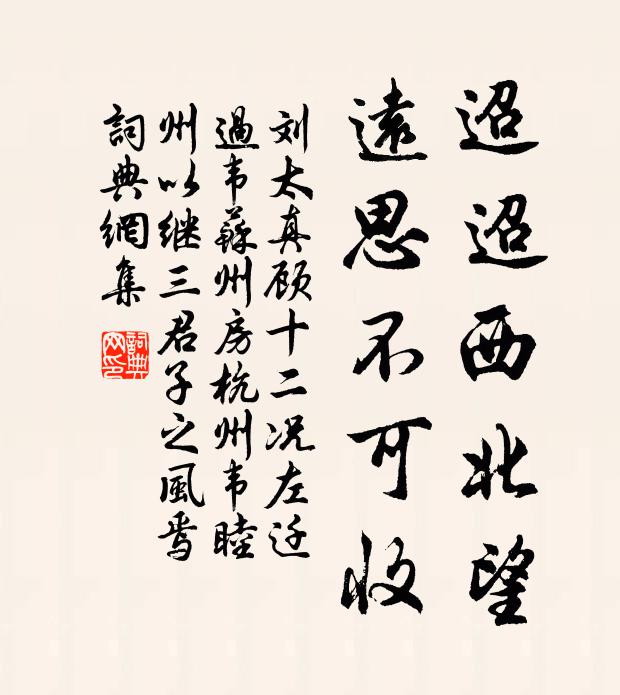 迢迢西北望
遠思不可收
刘太真顾十二况左迁
過韦蘇州房杭州韦睦
州以继三君子之風焉
詞典網集
詞典网印